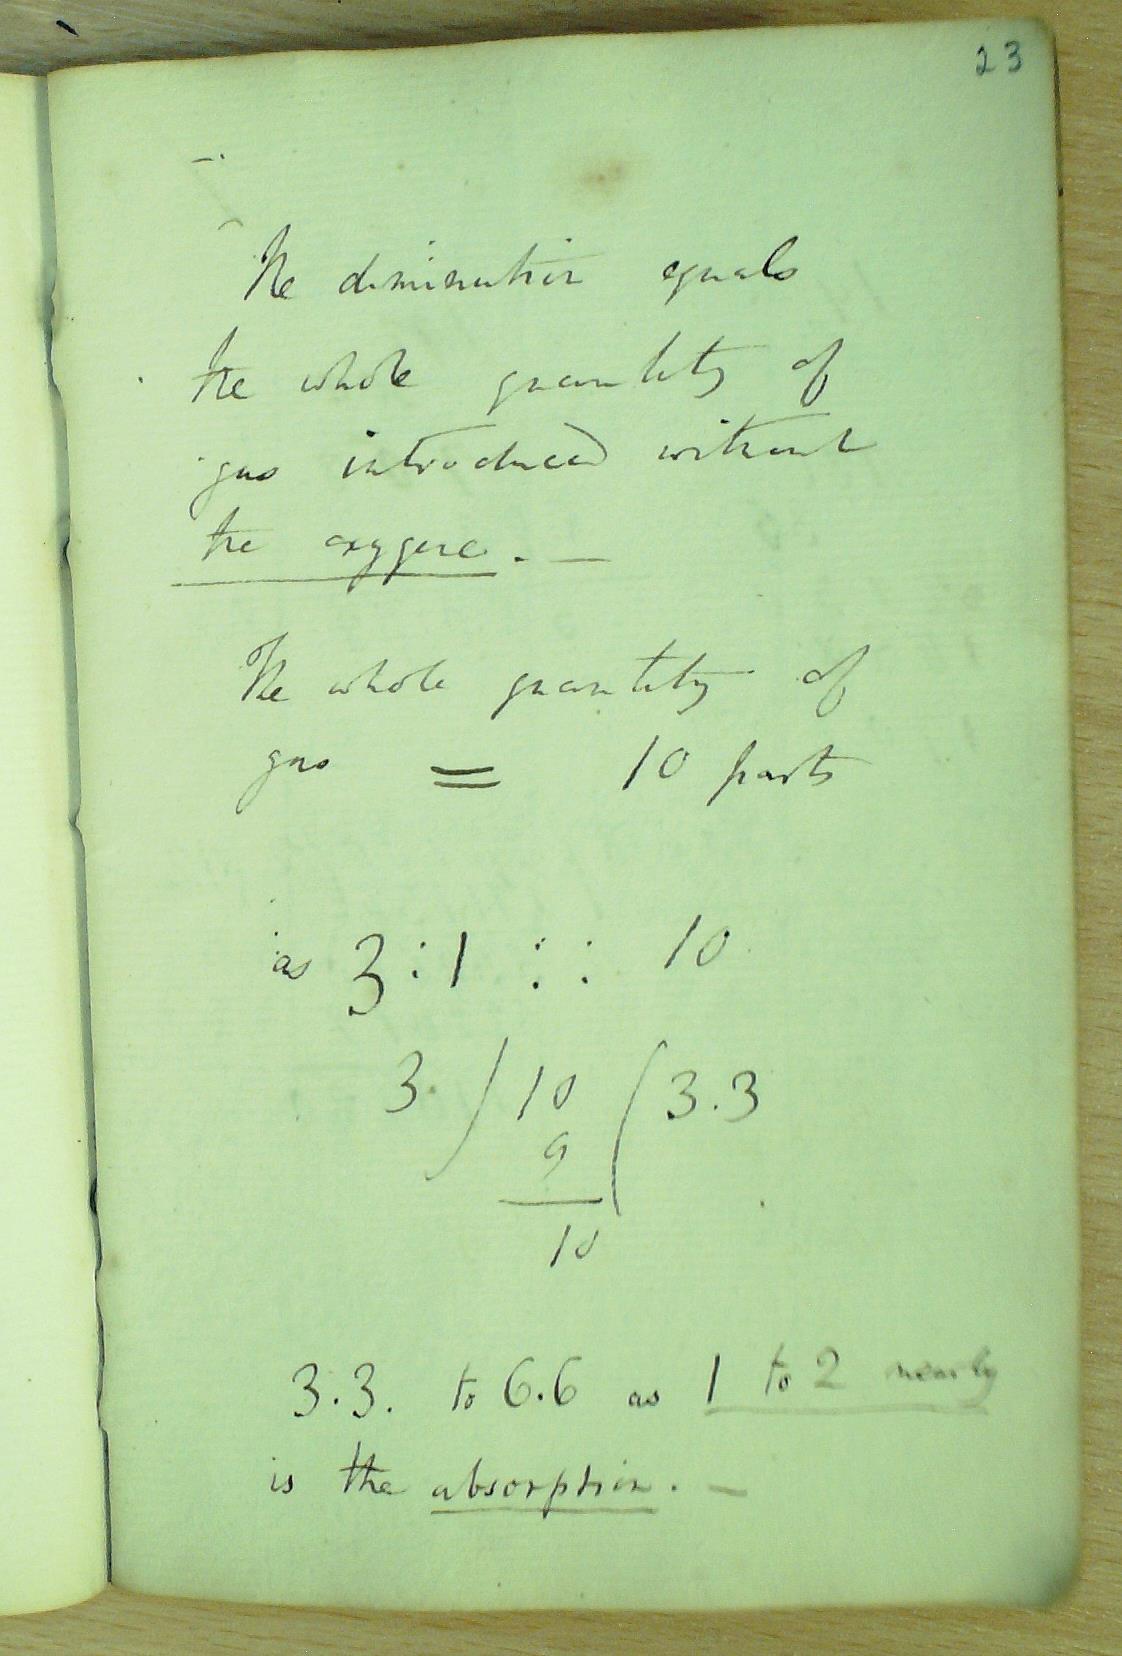 23
The diminution equals
the whole quantity of
gas introduced without
the oxygene. —
The whole quantity of
gas = 10 parts
as 3 : 1 : : 10
3. ) 10 ( 3.3
9
10
3.3. to 6.6 as 1 to 2 nearly
is the absorption. —